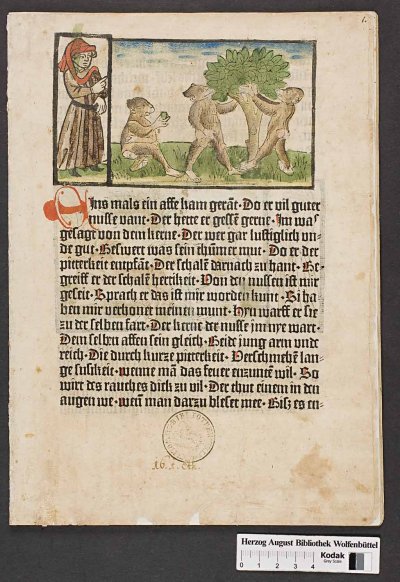 1.
EIns mals ein affe kam gerāt · Do er vil guter
nusse vant · Der hette er gessē gerne · Im was
gesagt von dem kerne · Der wer gar lustiglich vn-
de gut · Beswert was sein thūmer mut · Do er der
pitterkeit empfāt · Der schalē darnach zu hant · Be-
greiff er der schalē hertikeit · Von den nussen ist mir
geseit · Sprach er das ist mir worden kunt · Si ha-
ben mir verhonet meinen munt · Hyn warff er sie
zu der selben fart · Der kerne der nusse im nye wart ·
Dem selben affen sein gleich · Beide jung arm vnde
reich · Die durch kurze pitterkeit · Verschmehē lan-
ge susikeit · Wenne mā das feuer enzuntē wil · So
wirt des rauches dick zu vil · Der thut einem in den
augen we · Wen̄ man darzu bleset mee · Bisz es en-
16. 1. Eth.
Herzog August Bibliothek Wolfenbüttel
0 1 2 3 4 Kodak
Gray Scale